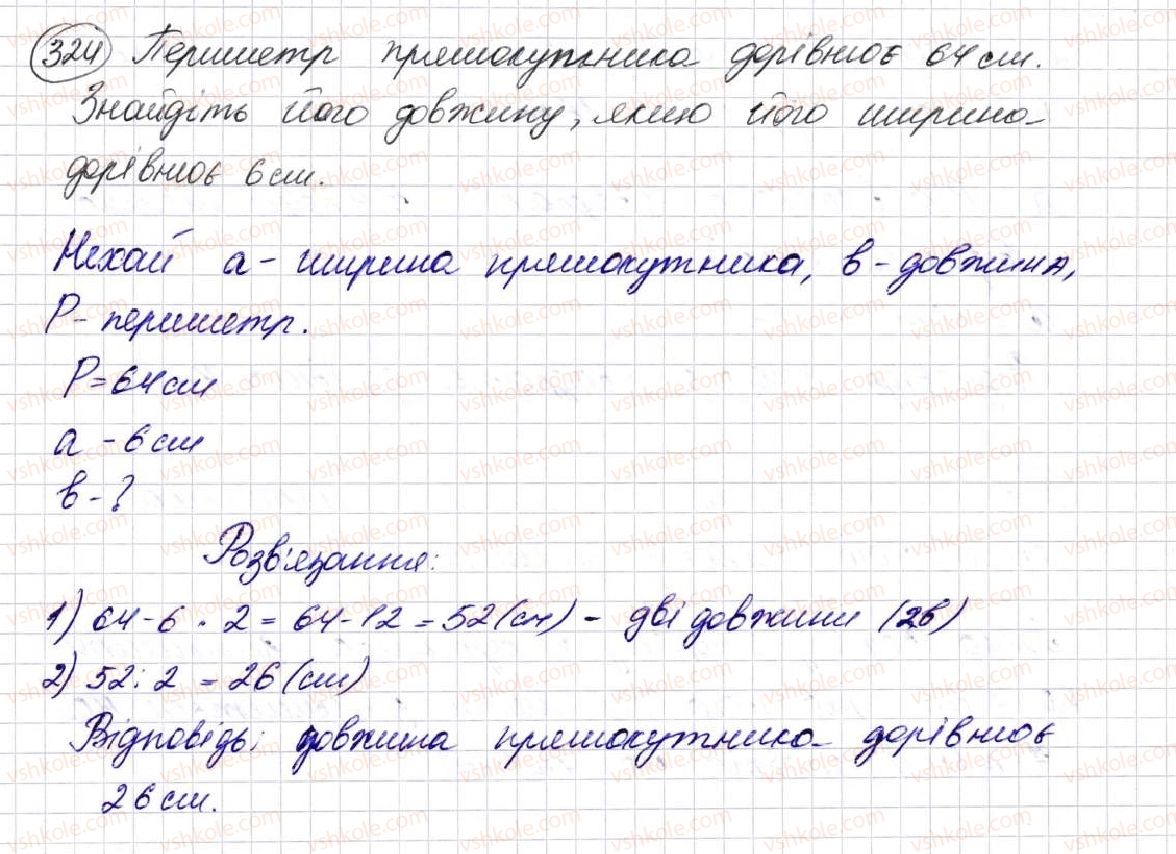 324 Периметр прямокутника дорівнює 64 см.
Знайдіть його довжину, якщо його ширина
дорівнює 6 см.
Нехай а - ширина прямокутника, в - довжина,
Р - периметр.
Р = 64 см
а - 6 см
в - ?
Розв'язання:
1) 64 - 6 · 2 = 64 - 12 = 52 (см) - дві довжини (2в)
2) 52 : 2 = 26 (см)
Відповідь: довжина прямокутника дорівнює
26 см.